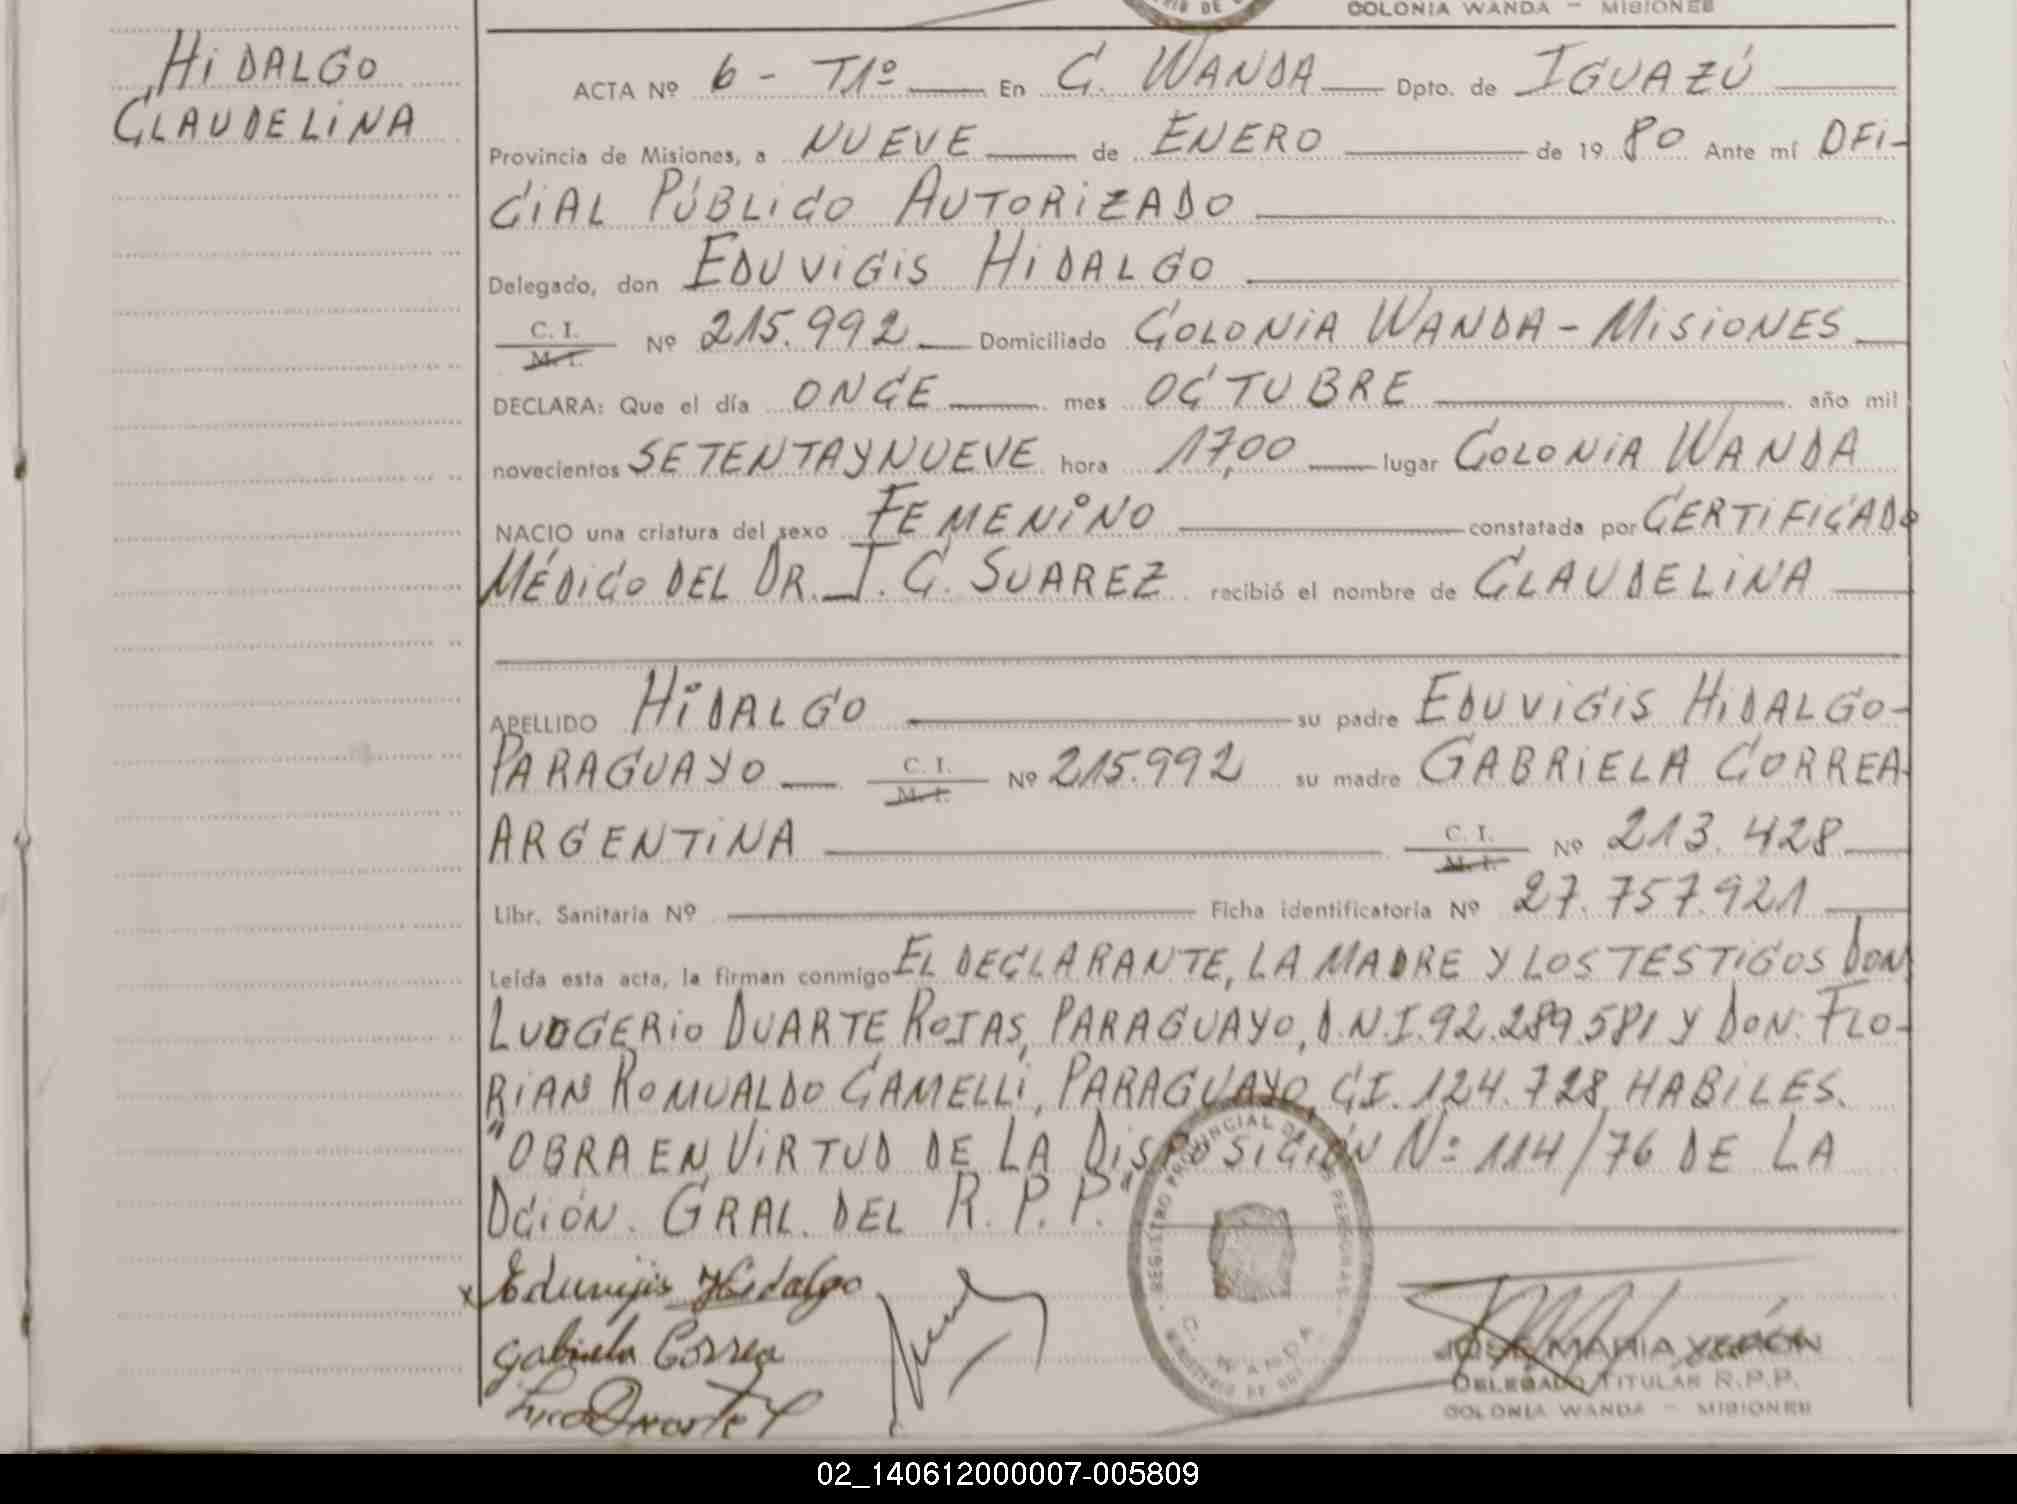 COLONIA WANDA - MISIONES
HIDALGO
CLAUDELINA
ACTA Nº 6 - T1º En C. WANDA Dpto. de IGUAZÚ
Provincia de Misiones, a NUEVE de ENERO de 19 80 Ante mí OFI-
CIAL PÚBLICO AUTORIZADO
Delegado, don EDUVIGIS HIDALGO
C. I.
M. I. Nº 215.992 Domiciliado COLONIA WANDA - MISIONES
DECLARA: Que el día ONCE mes OCTUBRE año mil
novecientos SETENTA Y NUEVE hora 17,00 lugar COLONIA WANDA
NACIO una criatura del sexo FEMENINO constatada por CERTIFICADO
MÉDICO DEL DR. J. C. SUAREZ recibió el nombre de CLAUDELINA
APELLIDO HIDALGO su padre EDUVIGIS HIDALGO-
PARAGUAYO C. I. M. I. Nº 215.992 su madre GABRIELA CORREA-
ARGENTINA C. I. M. I. Nº 213.428
Libr. Sanitaria Nº Ficha identificatoria Nº 27.757.921
Leída esta acta, la firman conmigo EL DECLARANTE, LA MADRE Y LOS TESTIGOS DON
LUDGERIO DUARTE ROJAS, PARAGUAYO, D.N.I. 92.289.581 Y DON. FLO-
RIAN ROMUALDO CAMELLI, PARAGUAYO, C.I. 124.728, HABILES.
"OBRA EN VIRTUD DE LA DISPOSICIÓN Nº 114/76 DE LA
DCIÓN. GRAL. DEL R. P. P."
REGISTRO PROVINCIAL DE LAS PERSONAS
C. WANDA
MINISTERIO DE
x Eduvijis Hidalgo
Gabriela Correa
JOSE MARIA
DELEGADO TITULAR R.P.P.
COLONIA WANDA - MISIONES
02_140612000007-005809